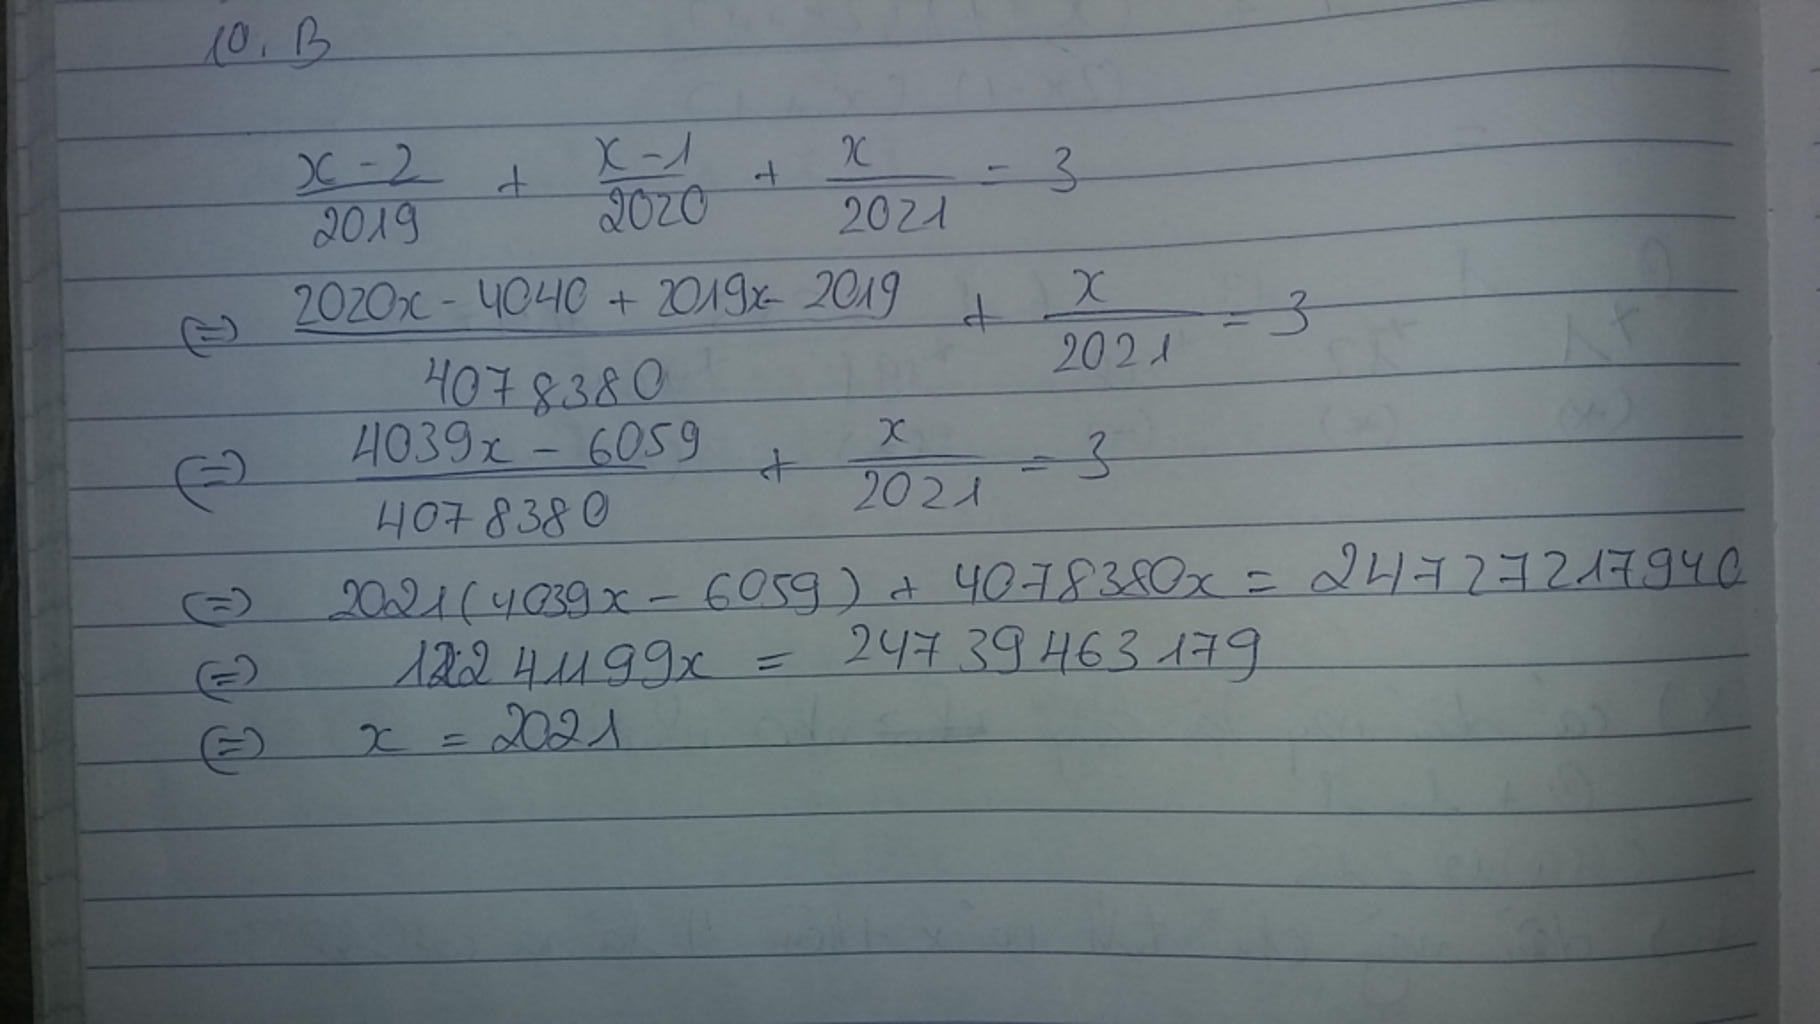 10. B
x - 2 / 2019 + x - 1 / 2020 + x / 2021 = 3
(=) 2020x - 4040 + 2019x - 2019 / 4078380 + x / 2021 = 3
(=) 4039x - 6059 / 4078380 + x / 2021 = 3
(=) 2021(4039x - 6059) + 4078380x = 24727217940
(=) 12241199x = 24739463179
(=) x = 2021